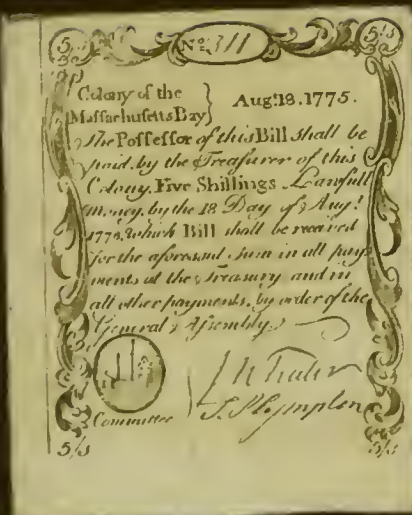 5/s No. 311 5/s
Colony of the } Aug.t 18. 1775.
Maſsachusetts Bay
The Poſseſsor of this Bill shall be
paid, by the Treaſurer of this
Colony, Five Shillings Lawfull
money, by the 18 Day of Aug.t
1778, which Bill shall be received
for the aforesaid sum in all pay
ments at the Treasury and in
all other payments, by order of the
General Aſsembly.
Committee
5/s 5/s